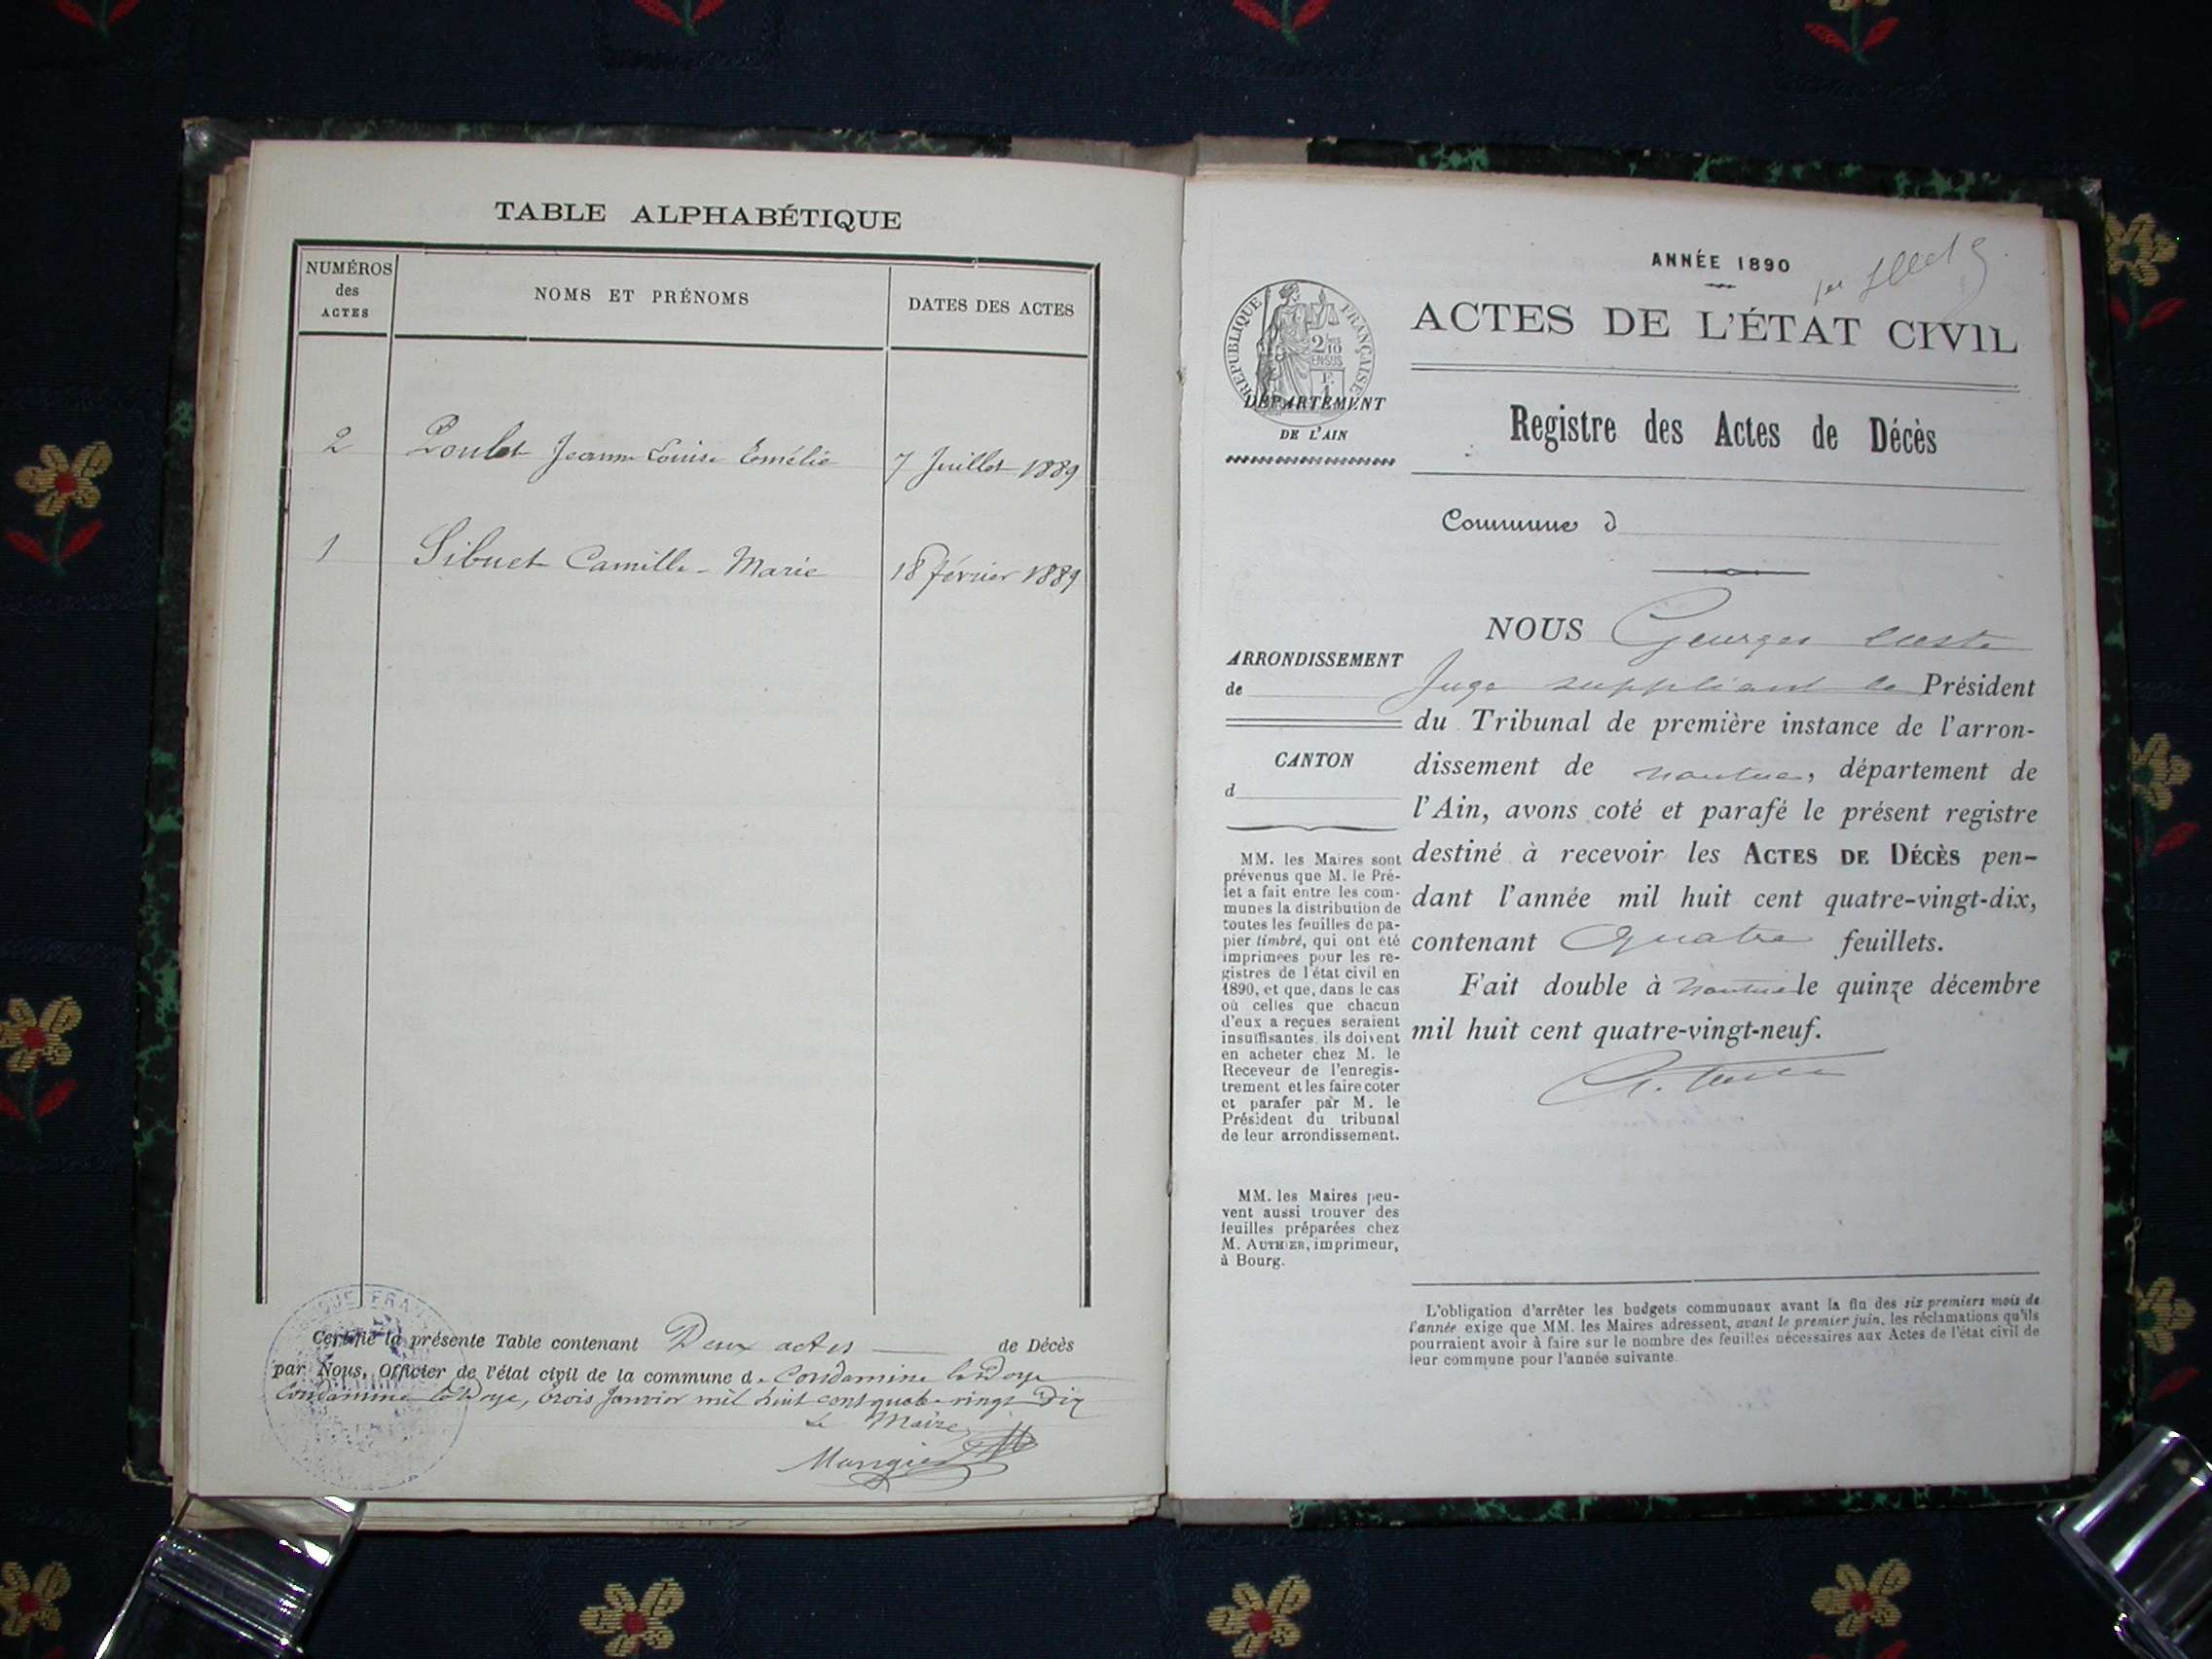 TABLE ALPHABÉTIQUE
NUMÉROS
des
ACTES
NOMS ET PRÉNOMS
DATES DES ACTES
2 Poulet Jeanne Louise Emélie 7 Juillet 1889
1 Sibuet Camille-Marie 18 février 1889
Certifié la présente Table contenant Deux actes de Décès
par Nous, Officier de l'état civil de la commune d. Condamine la Doye
Condamine la Doye, trois Janvier mil huit cent quatre-vingt Dix
Le Maire
ANNÉE 1890
1er
ACTES DE L'ÉTAT CIVIL
RÉPUBLIQUE FRANÇAISE
2/10
EN SUS
DÉPARTEMENT
DE L'AIN
Registre des Actes de Décès
Commune d
NOUS Georges
ARRONDISSEMENT
de
CANTON
d
Juge suppléant le Président
du Tribunal de première instance de l'arron-
dissement de Nantua, département de
l'Ain, avons coté et parafé le présent registre
destiné à recevoir les ACTES DE DÉCÈS pen-
dant l'année mil huit cent quatre-vingt-dix,
contenant Quatre feuillets.
Fait double à Nantua le quinze décembre
mil huit cent quatre-vingt-neuf.
MM. les Maires sont
prévenus que M. le Pré-
fet a fait entre les com-
munes la distribution de
toutes les feuilles de pa-
pier timbré, qui ont été
imprimées pour les re-
gistres de l'état civil en
1890, et que, dans le cas
où celles que chacun
d'eux a reçues seraient
insuffisantes, ils doivent
en acheter chez M. le
Receveur de l'enregis-
trement et les faire coter
et parafer par M. le
Président du tribunal
de leur arrondissement.
MM. les Maires peu-
vent aussi trouver des
feuilles préparées chez
M. AUTHIER, imprimeur,
à Bourg.
L'obligation d'arrêter les budgets communaux avant la fin des six premiers mois de
l'année exige que MM. les Maires adressent, avant le premier juin, les réclamations qu'ils
pourraient avoir à faire sur le nombre des feuilles nécessaires aux Actes de l'état civil de
leur commune pour l'année suivante.